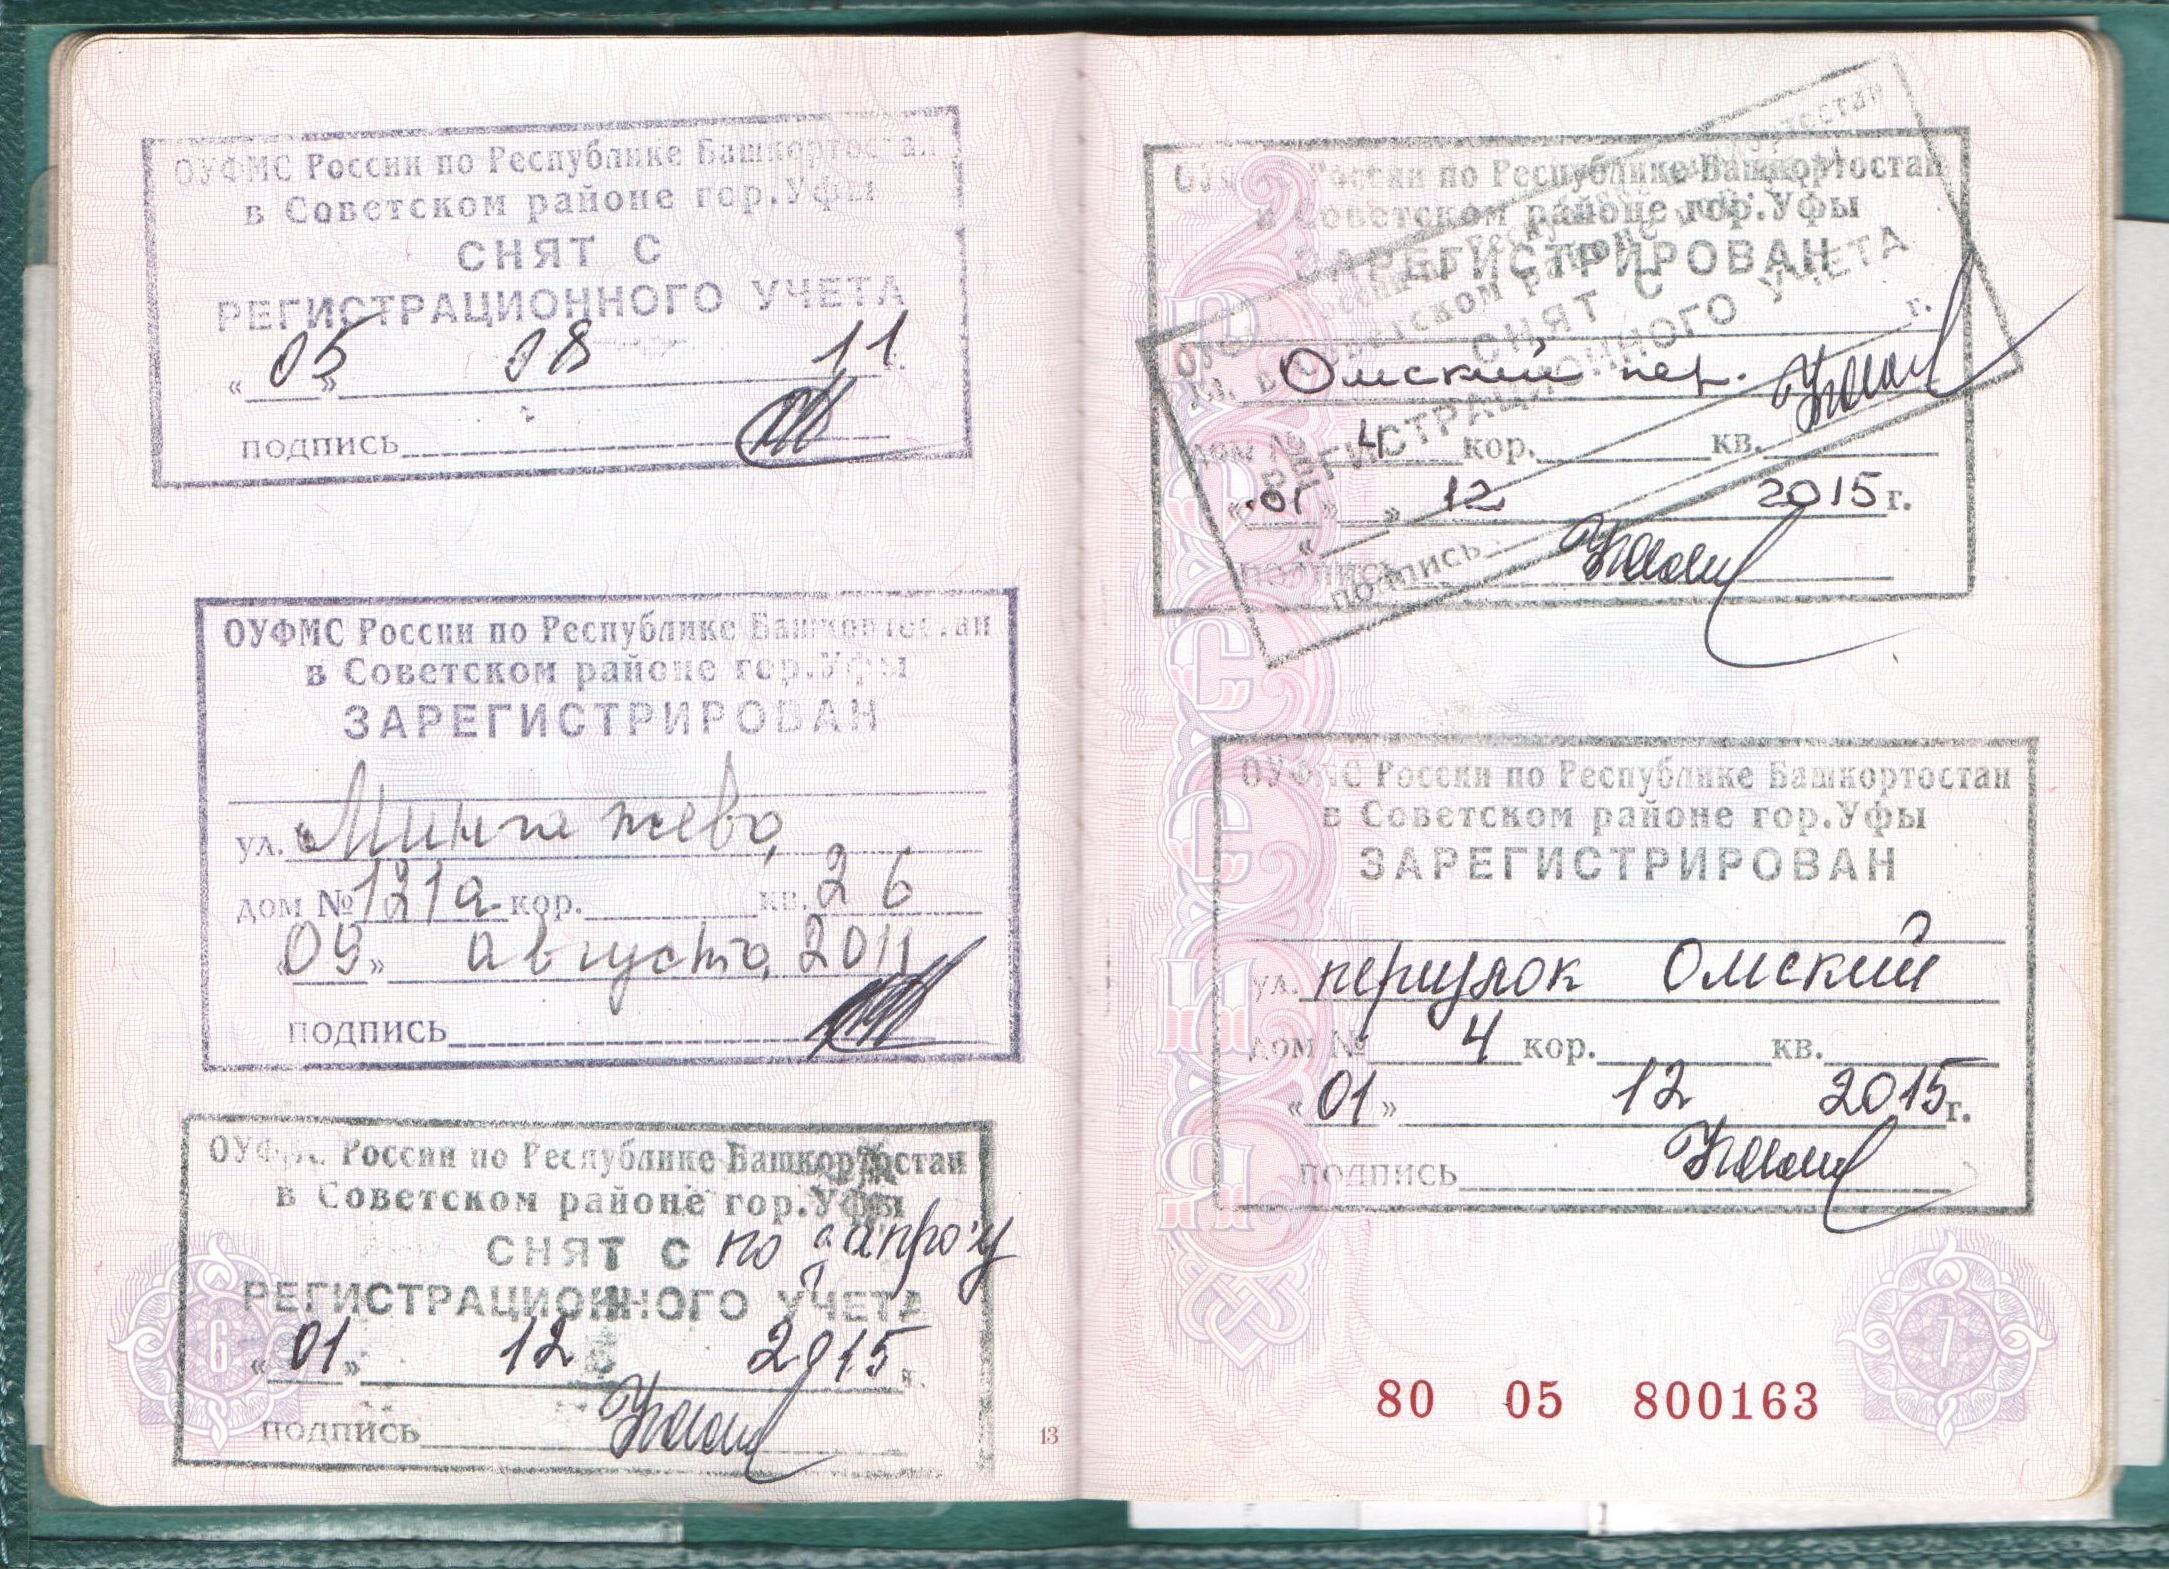 ОУФМС России по Республике Башкортостан
в Советском районе гор.Уфы
СНЯТ С
РЕГИСТРАЦИОННОГО УЧЕТА
«05» 08 11 г.
подпись
ОУФМС России по Республике Башкортостан
в Советском районе гор.Уфы
ЗАРЕГИСТРИРОВАН
ул. Мингажева
дом № 121а кор. кв. 26
«09» августа 2011
подпись
ОУФМС России по Республике Башкортостан
в Советском районе гор.Уфы
СНЯТ С по запросу
РЕГИСТРАЦИОННОГО УЧЕТА
«01» 12 2015 г.
подпись
6
13
ОУФМС России по Республике Башкортостан
в Советском районе гор.Уфы
ЗАРЕГИСТРИРОВАН
Омский пер.
дом № 4 кор. кв.
«01» 12 2015 г.
подпись
СНЯТ С
РЕГИСТРАЦИОННОГО УЧЕТА
г.
« »
подпись
ОУФМС России по Республике Башкортостан
в Советском районе гор.Уфы
ЗАРЕГИСТРИРОВАН
ул. переулок Омский
дом № 4 кор. кв.
«01» 12 2015 г.
подпись
РОССИЯ
80 05 800163
7